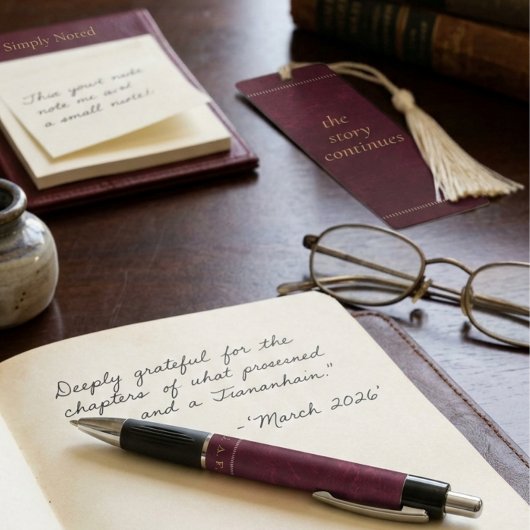 Simply Noted
note me
a small note!
the
story
continues
Deeply grateful for the
chapters of what prosesned
and a Jiananhain."
-'March 2026'
R.A.F.